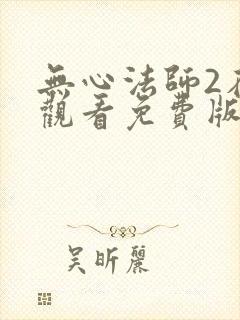 無心法師2在
觀看免費版
吳昕麗